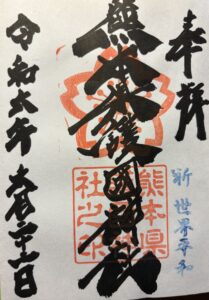 奉拝
祈 世界平和
熊本縣護國神社
熊本県
社之印
令和六年 六月二十一日